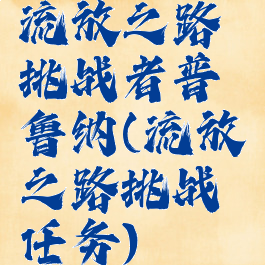 流放之路
挑战者普
鲁纳(流放
之路挑战
任务)